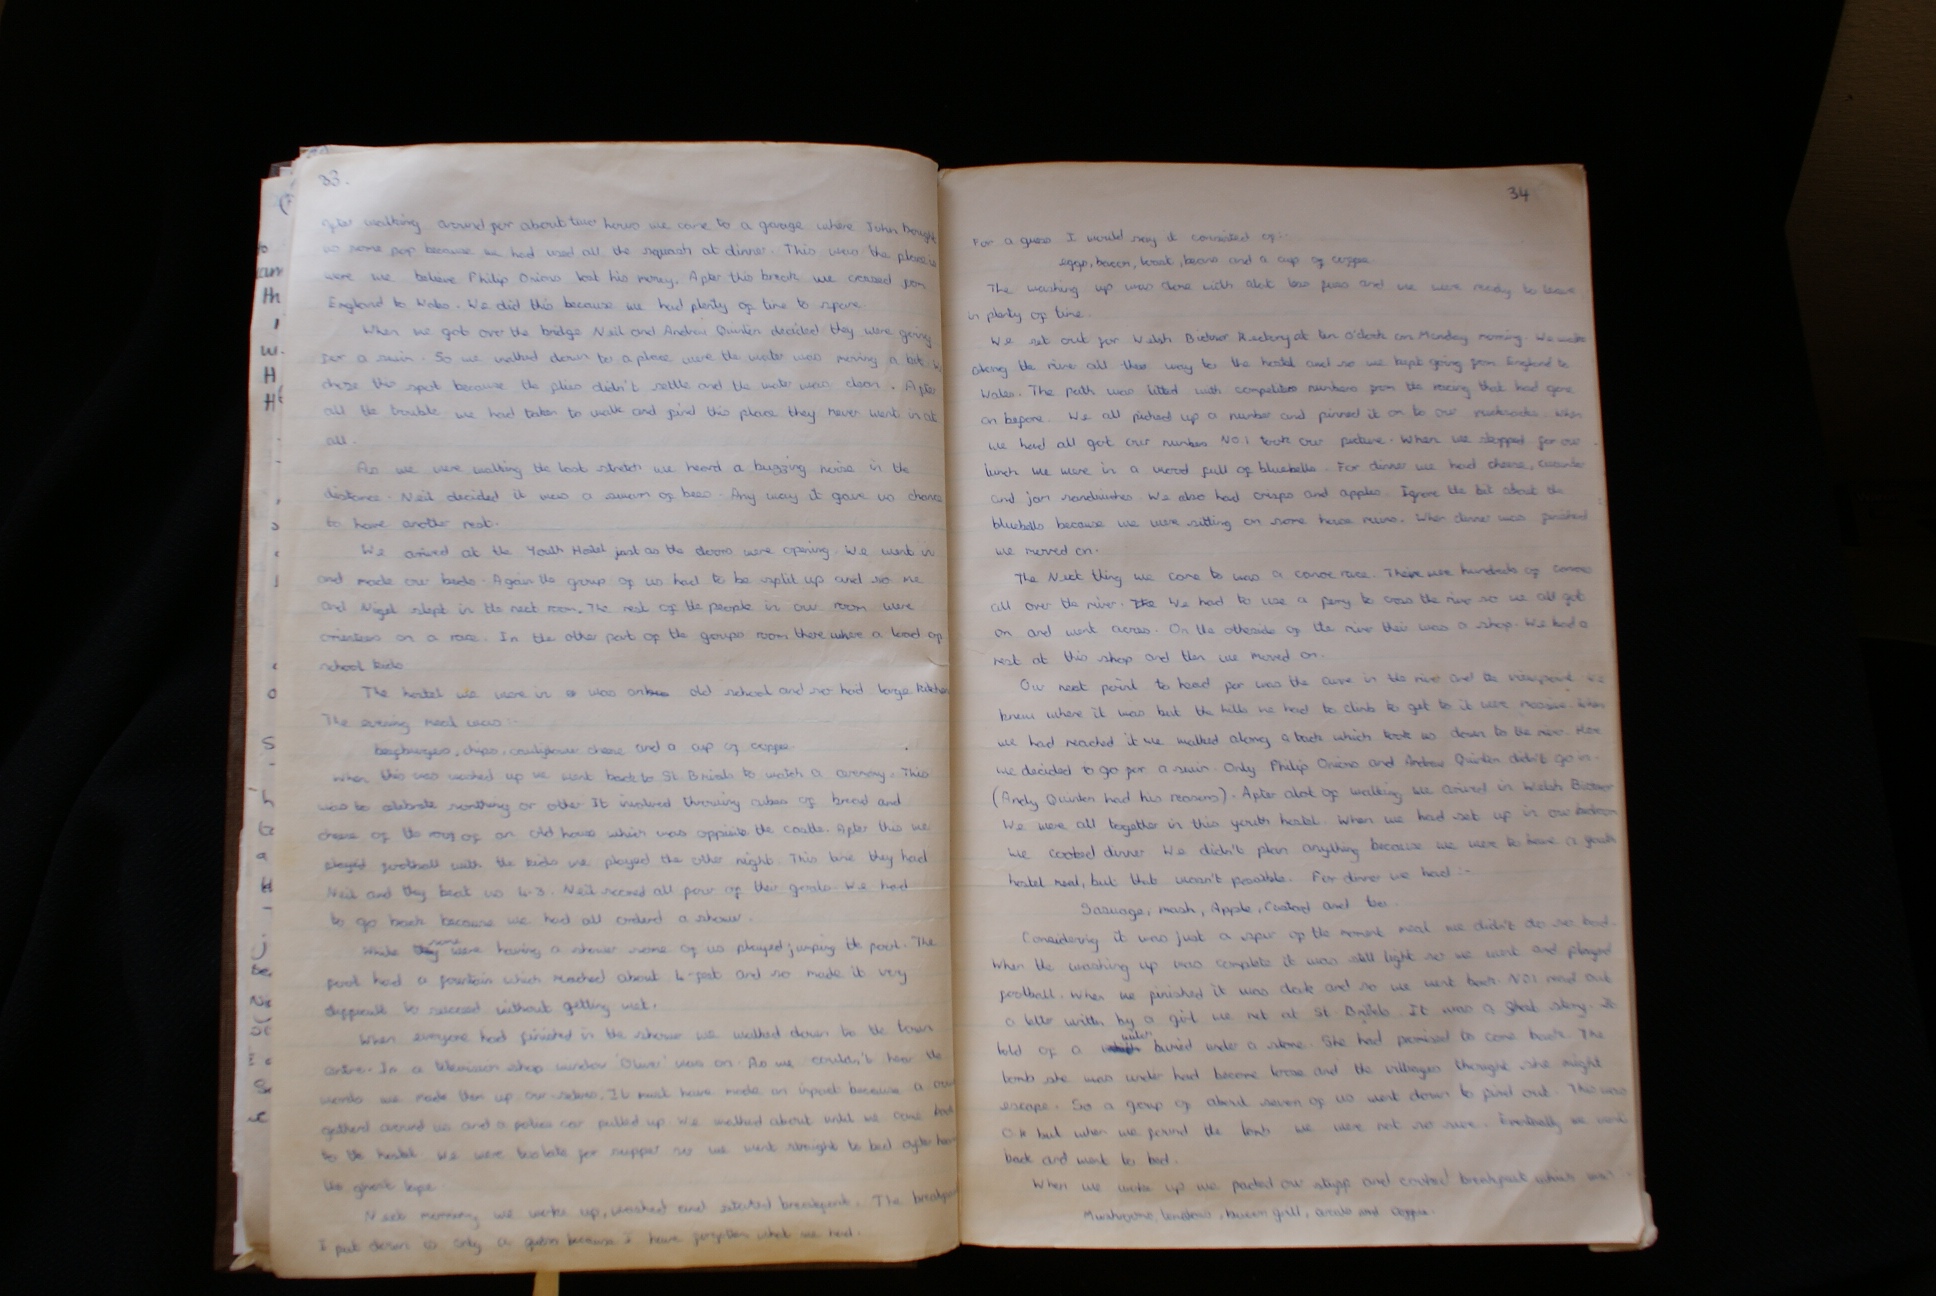 33.
After walking around for about two hours we came to a garage where John bought
us some pop because we had used all the squash at dinner. This was the place
were we believe Philip Onions lost his money. After this break we crossed from
England to Wales. We did this because we had plenty of time to spare.
When we got over the bridge Neil and Andrew Quinten decided they were going
for a swim. So we walked down to a place were the water was moving a bit. We
chose this spot because the flies didn't settle and the water was clean. After
all the trouble we had taken to walk and find this place they never went in at
all.
As we were walking the last stretch we heard a buzzing noise in the
distance. Neil decided it was a swarm of bees. Any way it gave us chance
to have another rest.
We arrived at the Youth Hostel just as the doors were opening. We went in
and made our beds. Again the group of us had to be split up and so me
and Nigel slept in the next room. The rest of the people in our room were
on a race. In the other part of the groups room there where a load of
school kids
The hostel we were in was an old school and so had large kitchen
The evening meal was:-
beefburgers, chips, cauliflower cheese and a cup of coffee.
When this was washed up we went back to St Briels to watch a ceremony. This
was to celebrate somthing or other It involved throwing cubes of bread and
cheese of the roof of an old house which was opposite the castle. After this we
played football with the kids we played the other night. This time they had
Neil and they beat us 4-3. Neil scored all four of their goals. We had
to go back because we had all ordered a shower.
While some were having a shower some of us played jumping the pool. The
pool had a fountain which reached about 4 feet and so made it very
difficult to succeed without getting wet.
When everyone had finished in the shower we walked down to the town
centre. In a television shop window 'Oliver' was on. As we couldn't hear the
words we made them up our-selves. It must have made an inpact because a crowd
gatherd around us and a police car pulled up. We walked about until we came back
to the hostel. We were too late for supper so we went straight to bed after hearing
the ghost tape.
Next morning we woke up, washed and started breakfast. The breakfast
I put down is only a guess because I have forgotten what we had.
34
For a guess I would say it consisted of:
eggs, bacon, toast, beans and a cup of coffee.
The washing up was done with alot less fuss and we were ready to leave
in plenty of time.
We set out for Welsh Bicknor Rectory at ten o'clock on Monday morning. We walked
along the river all the way to the hostel and so we kept going from England to
Wales. The path was litted with competitors numbers from the racing that had gone
on before. We all picked up a number and pinned it on to our rucksacks. When
we had all got our numbers NO.1 took our picture. When we stopped for our
lunch we were in a wood full of bluebells. For dinner we had cheese,
and jam sandwiches We also had crisps and apples. Ignore the bit about the
bluebells because we were sitting on some house ruins. When dinner was finished
we moved on.
The Next thing we came to was a canoe race. There were hundreds of canoes
all over the river. We had to use a ferry to cross the river so we all got
on and went across. On the otherside of the river their was a shop. We had a
rest at this shop and then we moved on.
Our next point to head for was the curve in the river and the viewpoint. We
knew where it was but the hills we had to climb to get to it were massive. When
we had reached it we walked along a track which took us down to the river. Here
we decided to go for a swim. Only Philip Onions and Andrew Quinten didn't go in.
(Andy Quinten had his reasons). After alot of walking we arrived in Welsh Bicknor
We were all together in this youth hostel. When we had set up in our bedroom
we cooked dinner. We didn't plan anything because we were to have a youth
hostel meal, but that wasn't possible. For dinner we had :-
Sausage, mash, Apple, Custard and tea.
Considering it was just a spur of the moment meal we didn't do so bad.
When the washing up was complete it was still light so we went and played
football. When we finished it was dark and so we went back. NO1 read out
a letter written by a girl we met at St. Briels. It was a ghost story. It
told of a buried under a stone. She had promised to come back. The
tomb she was under had become loose and the villagers thought she might
escape. So a group of about seven of us went down to find out. This was
OK but when we found the tomb we were not so sure. Eventually we went
back and went to bed.
When we woke up we packed our stuff and cooked breakfast which was:
Mushrooms, tomatoes, bacon grill, and coffee.